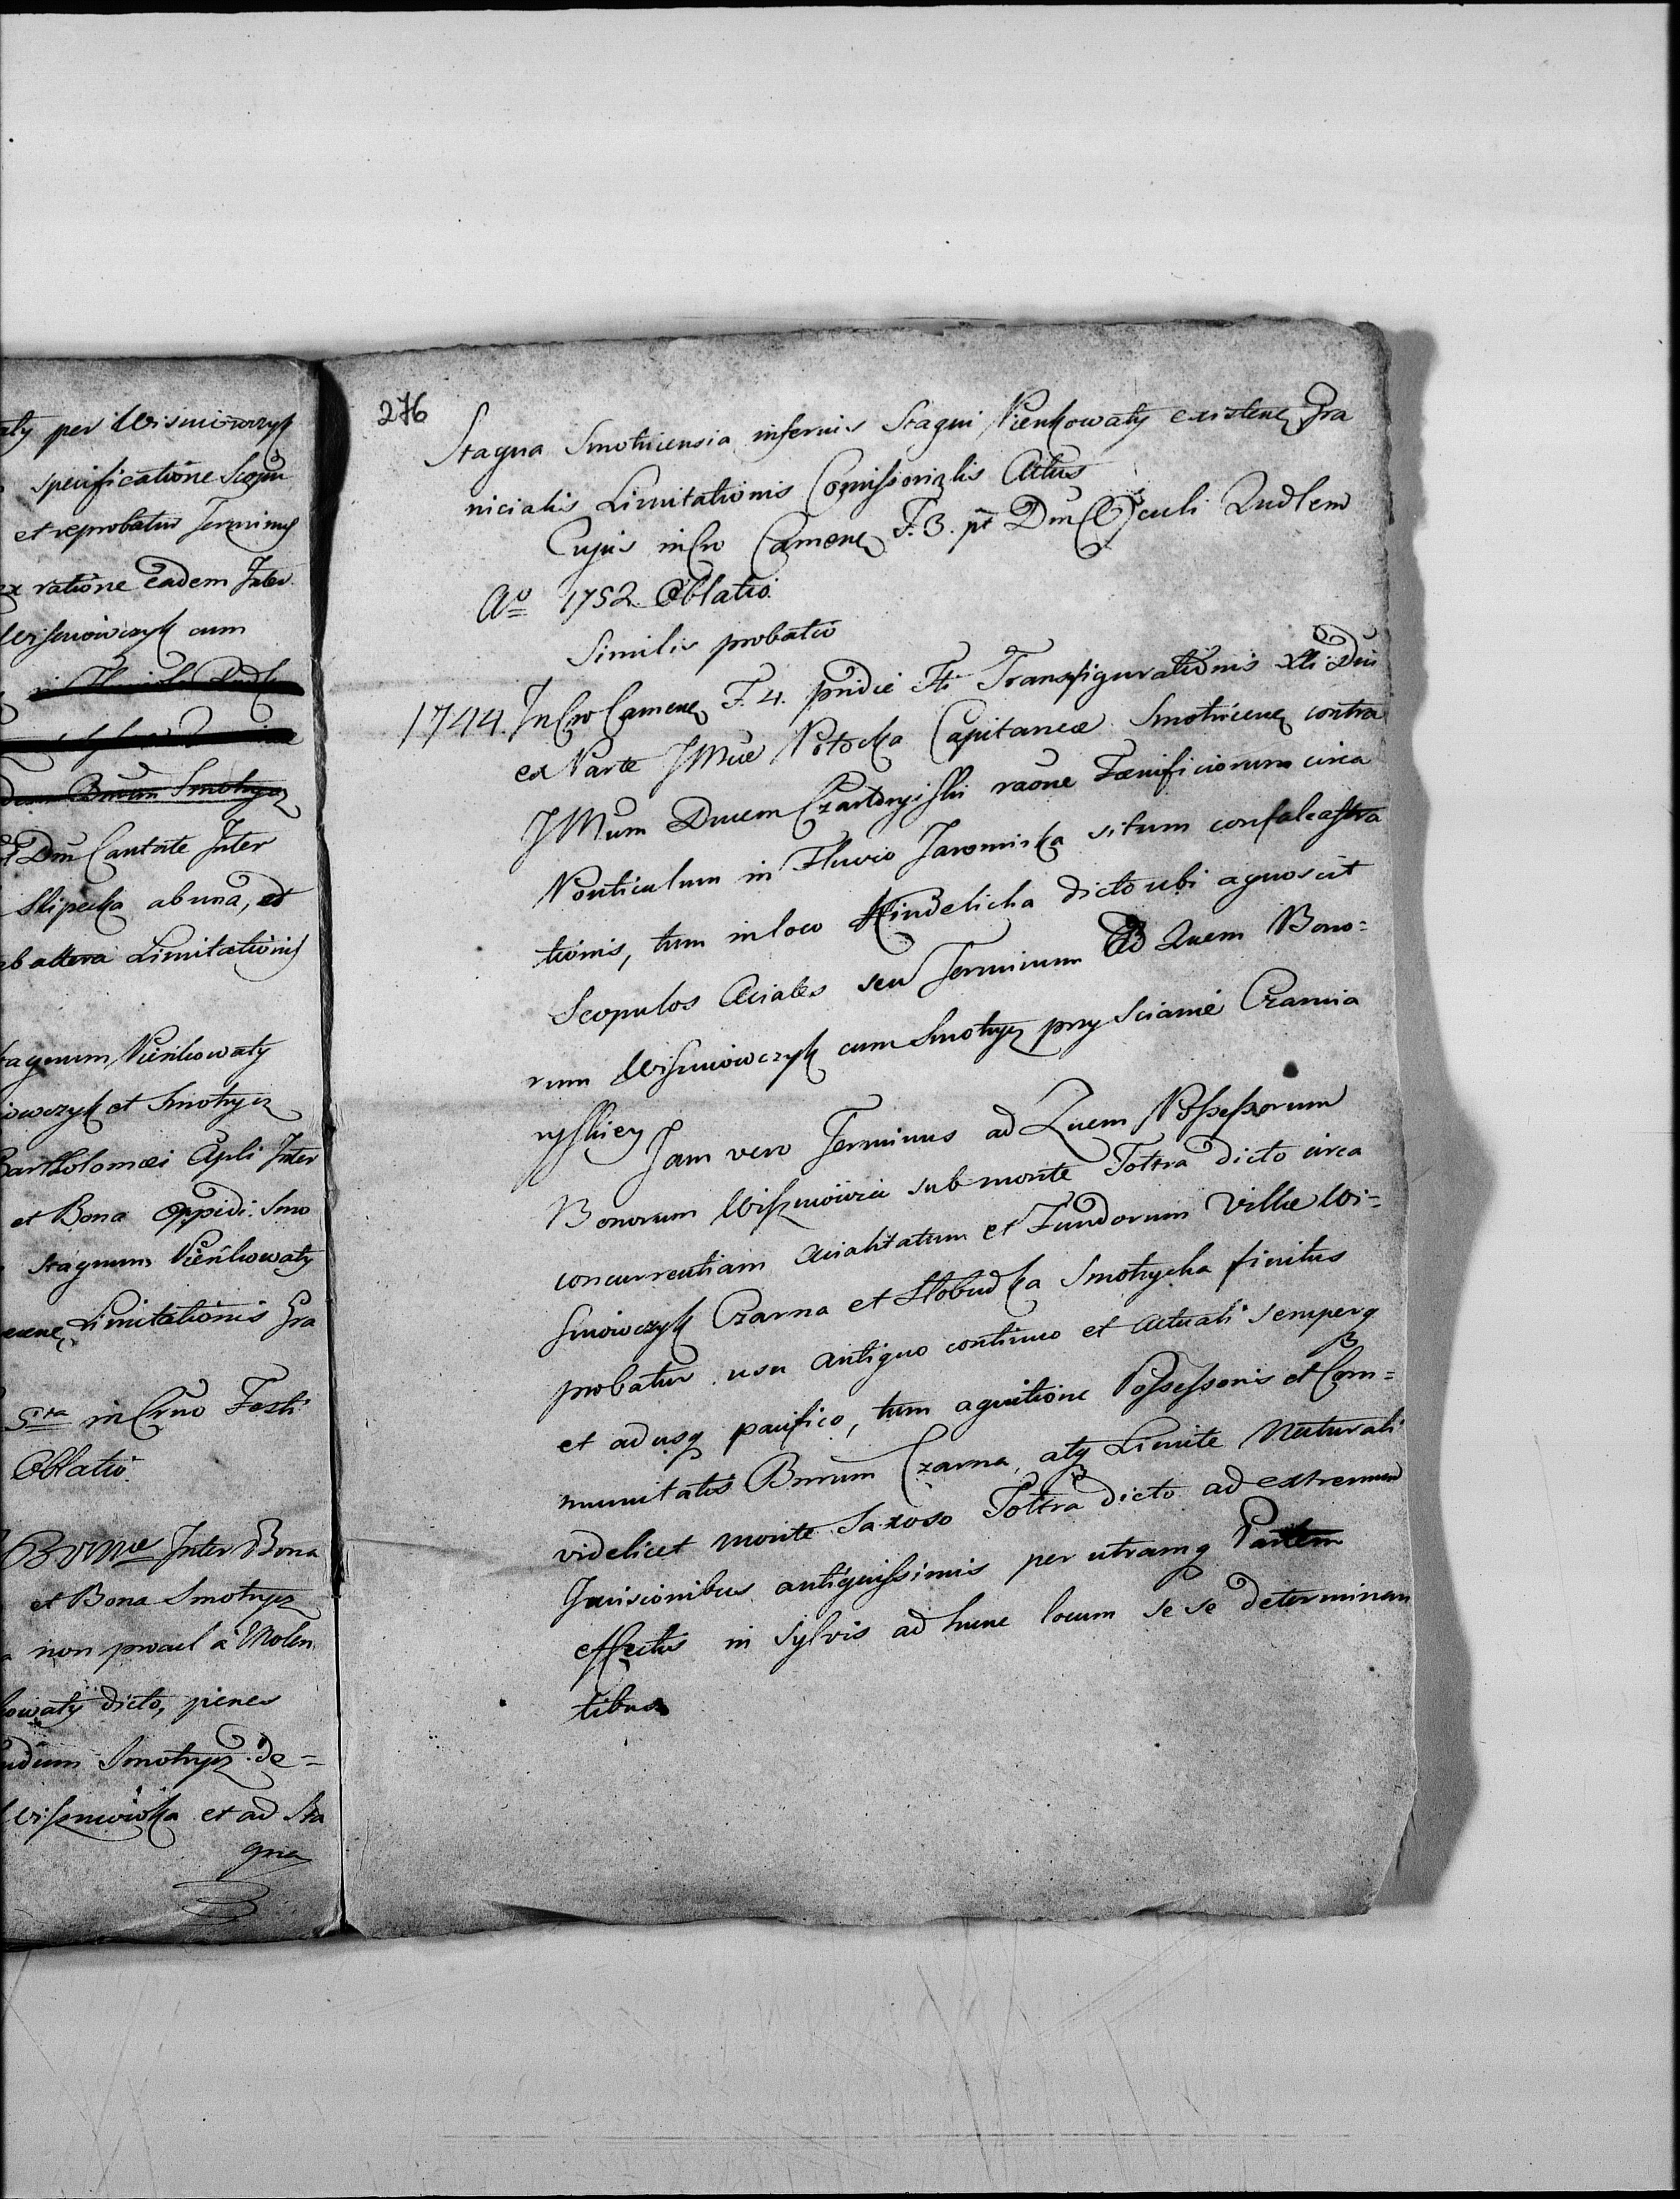 aty per Wisniowczyk
specificatione Scopu
et reprobatur Terminus
ex ratione eadem Inter
Wisniowczyk cum
Bnrum Smotrycz
Dni Cantate Inter
Skipecka ab una, et
ab altera Limitationis
tagnum Pieńkowaty
iowczyk et Smotrycz
Bartholomæi Apli Inter
et Bona Oppidi Smo
Stagnum Pieńkowaty
Limitationis Gra
in Crno Festi
Oblatio.
BVMae Inter Bona
et Bona Smotrycz
non procul a Molen
kowaty dicto, penes
Smotrycz de=
Wiszniowka et ad Sta
gna
276
Stagna Smotricensia infernis Stagni Pienkowaty existen Gra
nicialis Limitationis Comissorialis Actus
Cujus in Cro Camenen F. 3. pt Dm Oculi Qudlem
Ao 1752. Oblatio.
Similis probatio
1744. In Cro Camenen F. 4. pridie Fti Transfigurationis Xti Dni
ex Parte JMae Potocka Capitaneæ Smotricen contra
JMum Ducem Czartoryiski raone Fænificiorum circa
Ponticulum in Fluvio Jaromirka situm confalcastra
tionis, tum in loco Hindelicha dicto ubi agnoscit
Scopulos Aciales seu Terminum Ad Quem Bono=
rum Wiszniowczyk cum Smotrycz przy Scianie Czarnia
ryskiey
Jam vero Terminus ad Quem Possessorum
Bonorum Wiszniowice sub monte Toltra dicto circa
concurrentiam Acialitatum et Fundorum Villæ Wi=
sniowczyk Czarna et Slobudka Smotrycka finitus
probatur usu antiquo continuo et Actuali semperq
et adusq pacifico, tum agnitione Possessoris et Com=
munitatis Bnrum Czarna, atq Limite Naturali
videlicet monte Saxoso Toltra dicto ad extremum
Incisionibus antiquissimis per utramq Partem
effectis in Sylvis ad hunc locum se se determinan
tibus